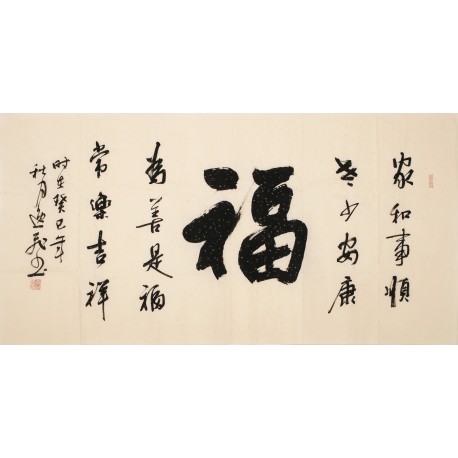 家和事順
老少安康
福
為善是福
常樂吉祥
时在癸巳年
秋月书